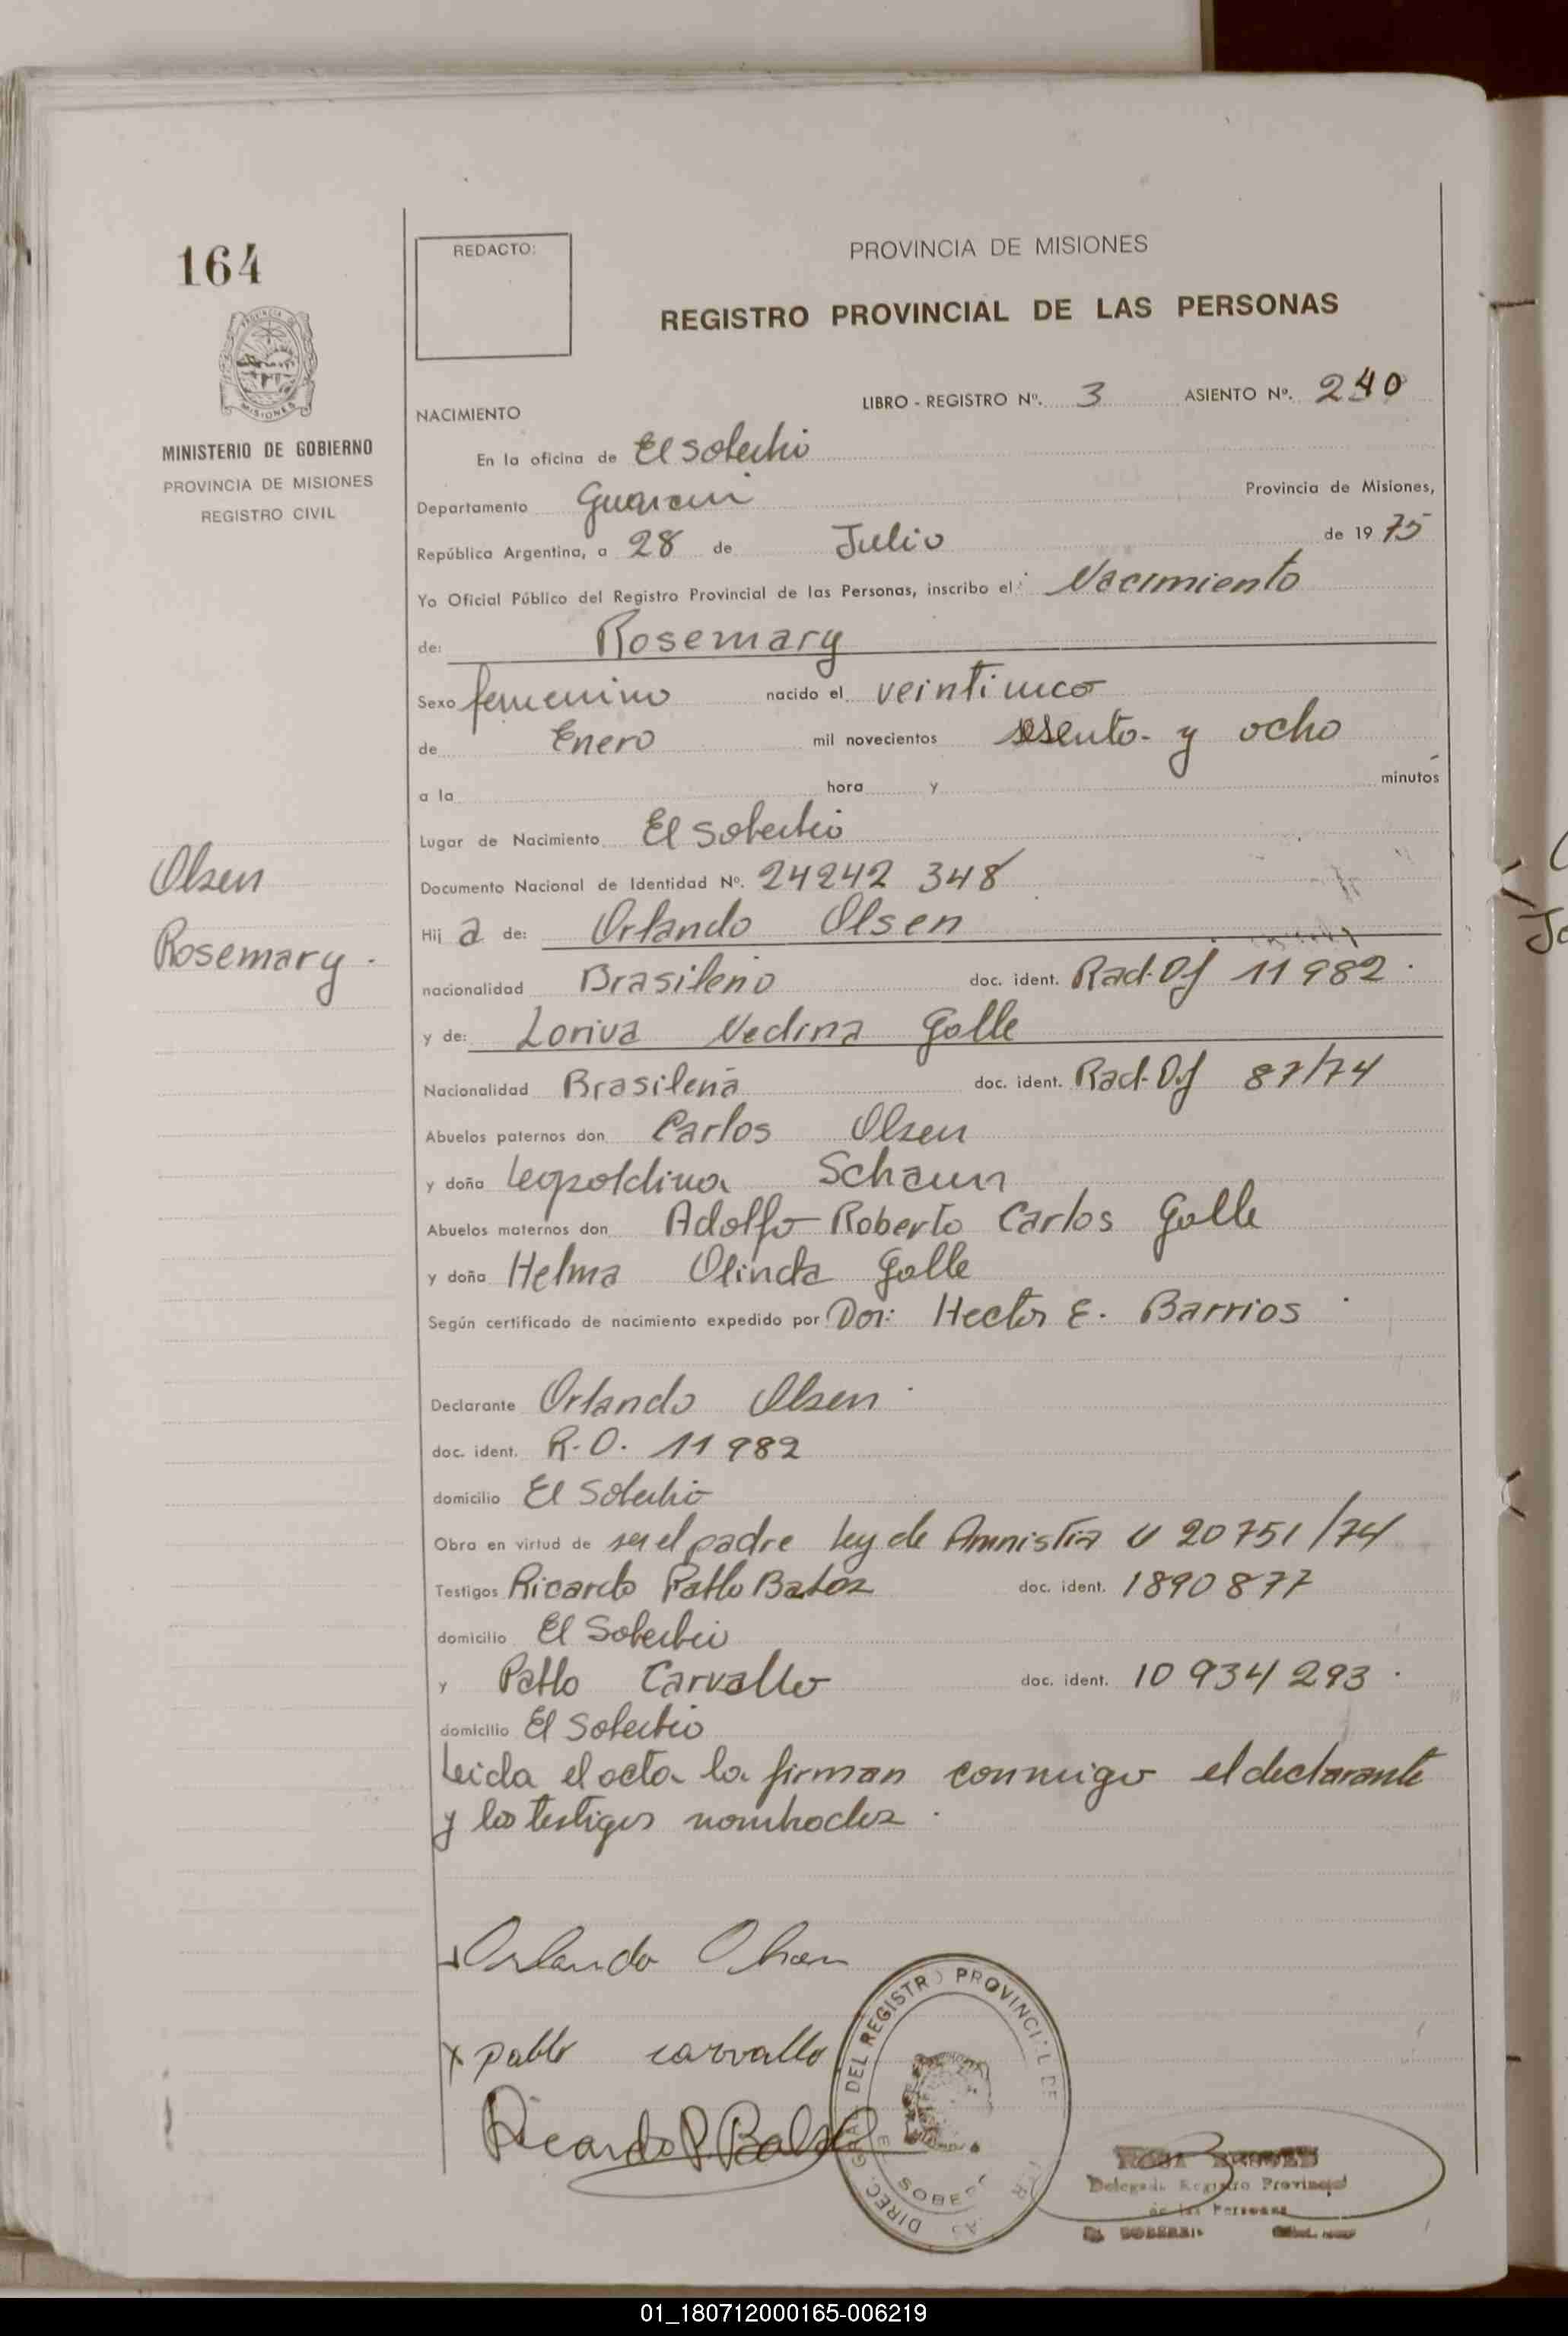 164
REDACTO:
PROVINCIA DE MISIONES
REGISTRO PROVINCIAL DE LAS PERSONAS
MISIONES
MINISTERIO DE GOBIERNO
PROVINCIA DE MISIONES
REGISTRO CIVIL
NACIMIENTO LIBRO - REGISTRO Nº. 3 ASIENTO Nº. 240
En la oficina de El Soberbio
Departamento Guarani Provincia de Misiones,
República Argentina, a 28 de Julio de 1975
Yo Oficial Público del Registro Provincial de las Personas, inscribo el: Nacimiento
de: Rosemary
Sexo femenino nacido el veinticinco
de Enero mil novecientos sesenta y ocho
a la hora y minutos
Lugar de Nacimiento El Soberbio
Olsen
Rosemary.
Documento Nacional de Identidad Nº. 24242 348
Hij a de: Orlando Olsen
nacionalidad Brasileño doc. ident. Rad. Of 11982
y de: Loriva Nedina Golle
Nacionalidad Brasileña doc. ident. Rad. Of 87/74
Abuelos paternos don Carlos Olsen
y doña Leopoldina Schaun
Abuelos maternos don Adolfo Roberto Carlos Golle
y doña Helma Olinda Golle
Según certificado de nacimiento expedido por Dor: Hector E. Barrios
Declarante Orlando Olsen
doc. ident. R.O. 11982
domicilio El Soberbio
Obra en virtud de ser el padre Ley de Amnistia 20751/74
Testigos Ricardo Pablo doc. ident. 1890877
domicilio El Soberbio
y Pablo Carvallo doc. ident. 10 934 293.
domicilio El Soberbio
Leida el acta la firman conmigo el declarante
y los testigos nombrados.
Orlando Olsen
x pablo carvallo
Ricardo P.
DIREC. GRAL. DEL REGISTRO PROVINCIAL DE
Delegada Registro Provincial
de las Personas
EL SOBERBIO
01_180712000165-006219